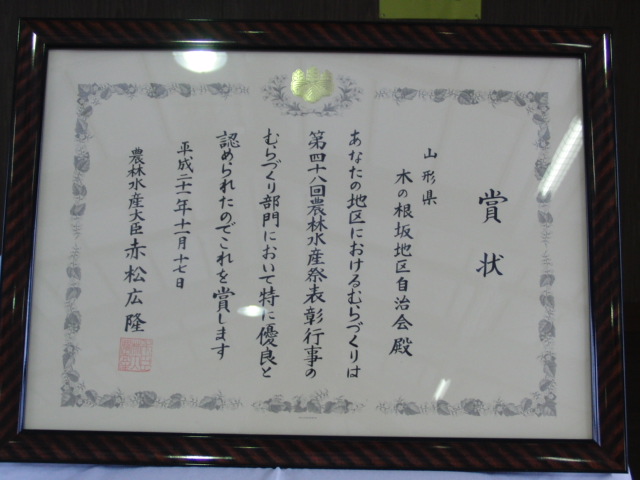 賞状
山形県
木の根坂地区自治会殿
あなたの地区におけるむらづくりは
第四十八回農林水産祭表彰行事の
むらづくり部門において特に優良と
認められたのでこれを賞します
平成二十一年十一月十七日
農林水産大臣 赤松広隆